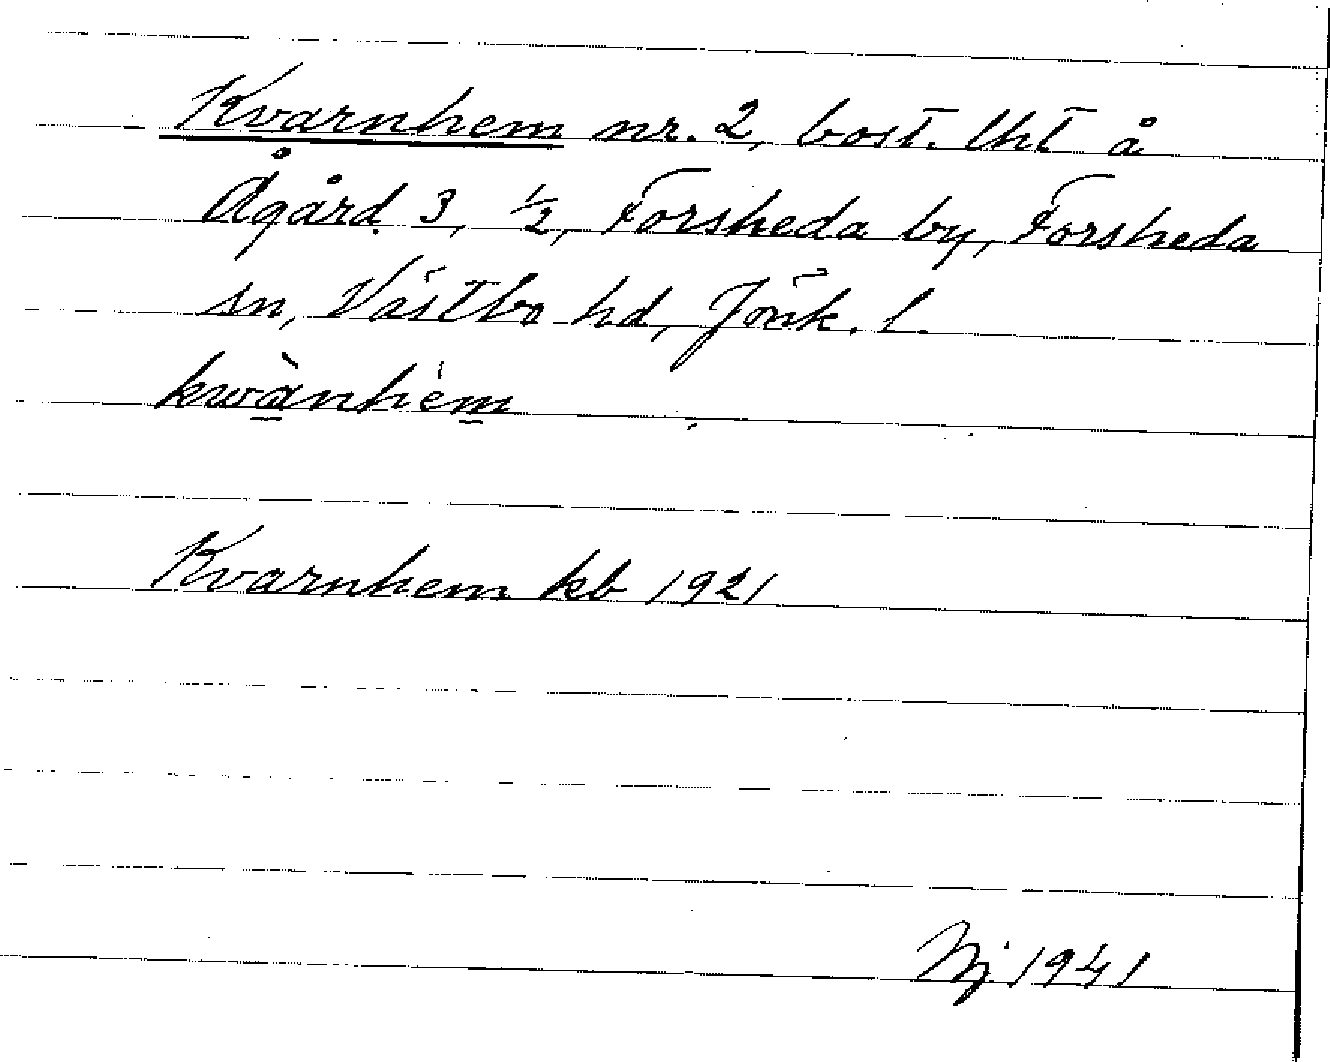 Kvarnhem nr. 2, bost. lht å
Ågård 3, 1/2, Forsheda by, Forsheda
sn, Västbo hd, Jönk. l.
kwànhém
Kvarnhem kb 1921
1941